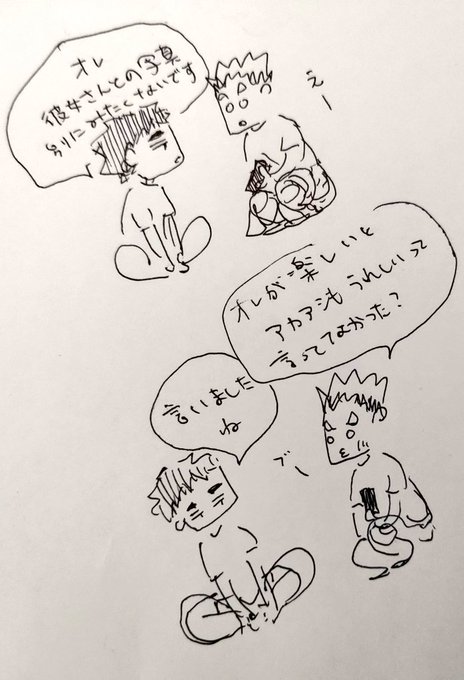 オレ
彼女さんとの写真
別にみたくないです
えー
オレが楽しいと
アカアシもうれしいって
言ってなかった？
言いました
ね
ブー